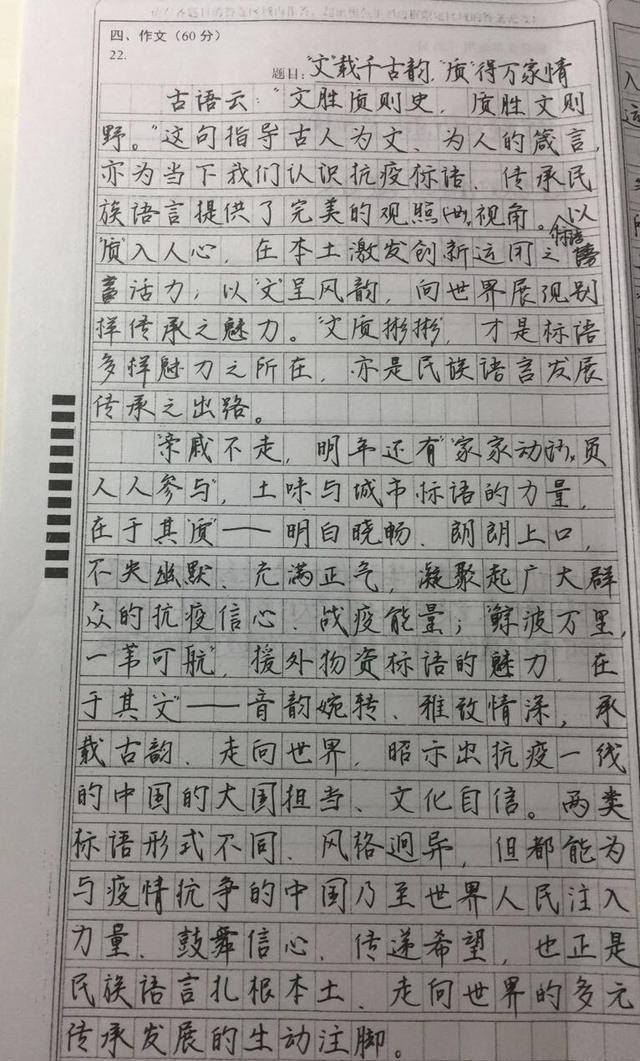 四、作文（60分）
22.
题目："文"载千古韵，"质"得万家情
古语云："文胜质则史，质胜文则
野。"这句指导古人为文、为人的箴言，
亦为当下我们认识抗疫标语、传承民
族语言提供了完美的观照视角。以
"质"入人心，在本土激发创新运用之标语
活力；以"文"呈风韵，向世界展现别
样传承之魅力。"文质彬彬"，才是标语
多样魅力之所在，亦是民族语言发展
传承之出路。
"亲戚不走，明年还有""家家动员
人人参与"，土味与城市标语的力量，
在于其"质"——明白晓畅、朗朗上口，
不失幽默、充满正气，凝聚起广大群
众的抗疫信心、战疫能量；"鲸波万里，
一苇可航"，援外物资标语的魅力，在
于其"文"——音韵婉转、雅致情深，承
载古韵、走向世界，昭示出抗疫一线
的中国的大国担当、文化自信。两类
标语形式不同、风格迥异，但都能为
与疫情抗争的中国乃至世界人民注入
力量、鼓舞信心、传递希望，也正是
民族语言扎根本土、走向世界的多元
传承发展的生动注脚。